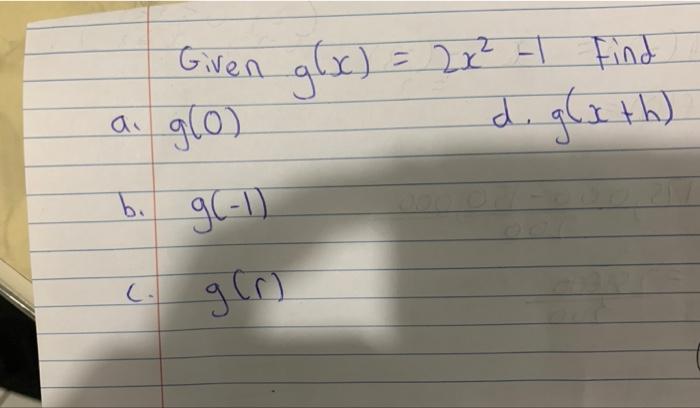 Given g(x) = 2x² -1 Find
a. g(0)
d. g(x+h)
b. g(-1)
c. g(r)